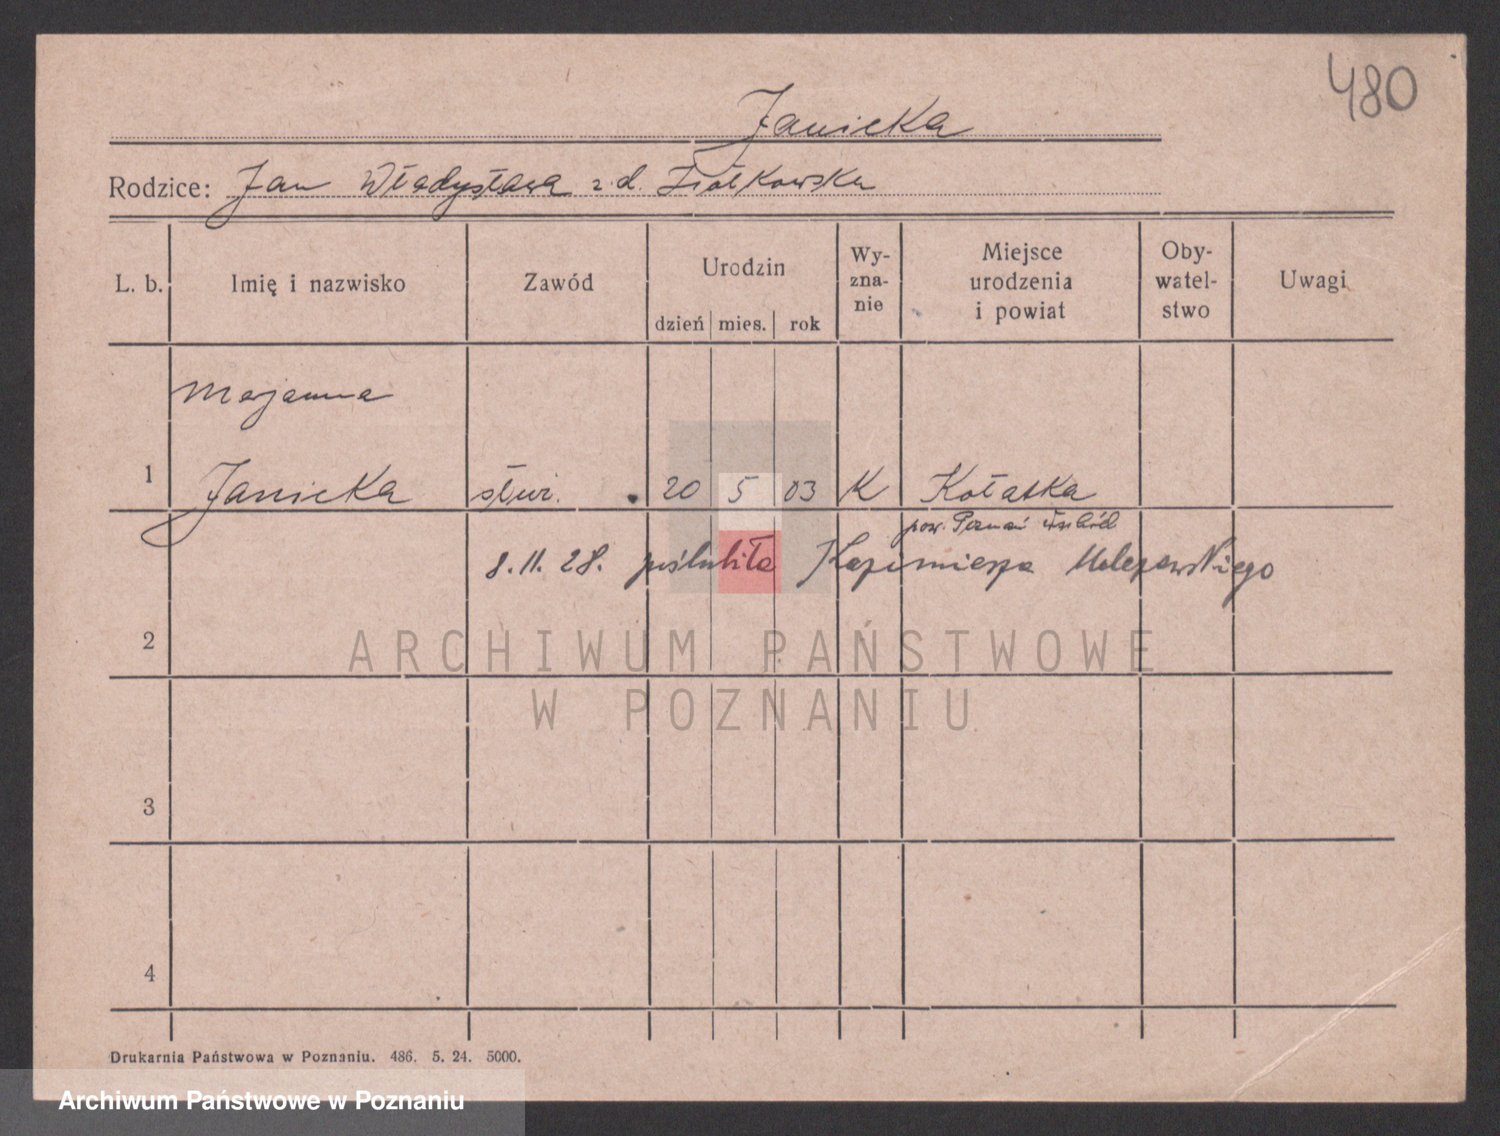 480
Janicka
Rodzice: Jan Władysława z d. Ziółkowska
L. b. Imię i nazwisko Zawód Urodzin dzień mies. rok Wy-zna-nie Miejsce urodzenia i powiat Oby-watel-stwo Uwagi
Marjanna
1 Janicka służ. 20 5 03 K Kołatka
pow. Poznań Wschód
8.11.28. poślubiła Kazimierza
2
ARCHIWUM PAŃSTWOWE
W POZNANIU
3
4
Drukarnia Państwowa w Poznaniu. 486. 5. 24. 5000.
Archiwum Państwowe w Poznaniu